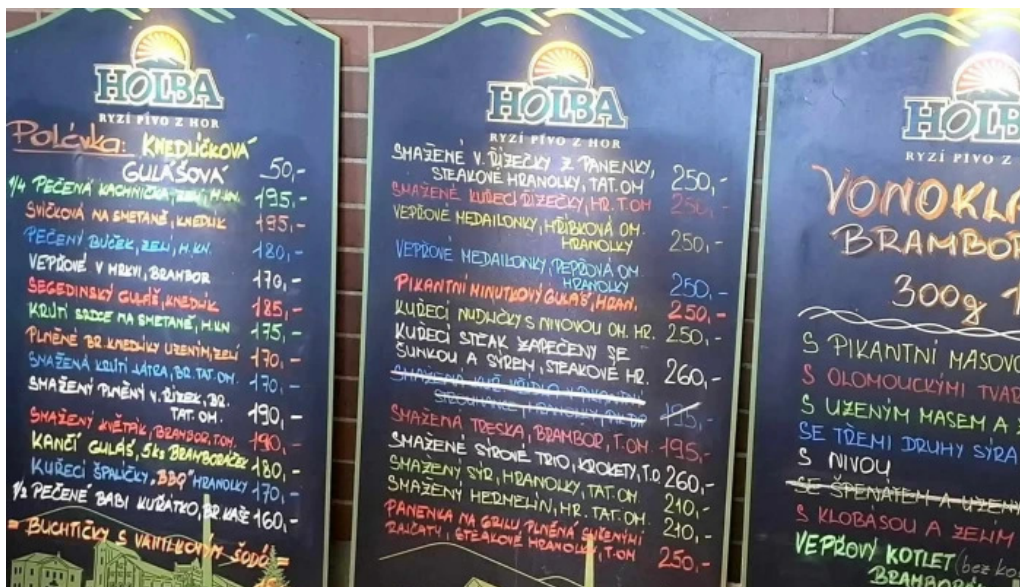 HOLBA
RYZÍ PIVO Z HOR
Polévka: KNEDLÍČKOVÁ
GULÁŠOVÁ 50,-
1/4 PEČENÁ KACHNIČKA, ZELÍ, H.KN. 195.-
SVÍČKOVÁ NA SMETANĚ, KNEDLÍK 195.-
PEČENÝ BŮČEK, ZELÍ, H.KN. 180,-
VEPŘOVÉ V MRKVI, BRAMBOR 170,-
SEGEDINSKÝ GULÁŠ, KNEDLÍK 185,-
KRŮTÍ SRDCE NA SMETANĚ, H.KN 175,-
PLNĚNÉ BR. KNEDLÍKY UZENÝM, ZELÍ 170.-
SMAŽENÁ KRŮTÍ JÁTRA, BR. TAT. OM. 170.-
SMAŽENÝ PLNĚNÝ V. ŘÍZEK, BR.
TAT. OM. 190,-
SMAŽENÝ KVĚTÁK, BRAMBOR, T.OM. 190.-
KANČÍ GULÁŠ, 5ks BRAMBORÁČEK 180,-
KUŘECÍ ŠPALÍČKY, "BBQ" HRANOLKY 170,-
1/2 PEČENÉ BABI KUŘÁTKO, BR. KAŠE 160,-
= BUCHTIČKY S VANILKOVÝM ŠODÓ =
HOLBA
RYZÍ PIVO Z HOR
SMAŽENÉ V. ŘÍZEČKY Z PANENKY,
STEAKOVÉ HRANOLKY, TAT. OM 250,-
SMAŽENÉ KUŘECÍ ŘÍZEČKY, HR. T.OM 250,-
VEPŘOVÉ MEDAILONKY, HŘÍBKOVÁ OM.
HRANOLKY 250,-
VEPŘOVÉ MEDAILONKY, PEPŘOVÁ OM
HRANOLKY 250,-
PIKANTNÍ MINUTKOVÝ GULÁŠ, HRAN. 250,-
KUŘECÍ NUDLIČKY S NIVOVOU OM. HR. 250,-
KUŘECÍ STEAK ZAPEČENÝ SE
ŠUNKOU A SÝREM, STEAKOVÉ HR. 260,-
SMAŽENÁ
STROUHANCE, HRANOLKY 195,-
SMAŽENÁ TRESKA, BRAMBOR, T.OM 195,-
SMAŽENÉ SÝROVÉ TRIO, KROKETY, T.O. 260,-
SMAŽENÝ SÝR, HRANOLKY, TAT. OM. 210,-
SMAŽENÝ HERMELÍN, HR. TAT. OM. 210,-
PANENKA NA GRILU PLNĚNÁ SUŠENÝMI
RAJČATY, STEAKOVÉ HRANOLKY, T.OM 250,-
HOLB
RYZÍ PIVO Z
VONOKLA
BRAMBOR
300g 1
S PIKANTNÍ MASOVO
S OLOMOUCKÝMI TVAR
S UZENÝM MASEM A
SE TŘEMI DRUHY SÝRA
S NIVOU
SE ŠPENÁTEM A UZENÝ
S KLOBÁSOU A ZELÍM
VEPŘOVÝ KOTLET (bez ko
BRAMBO